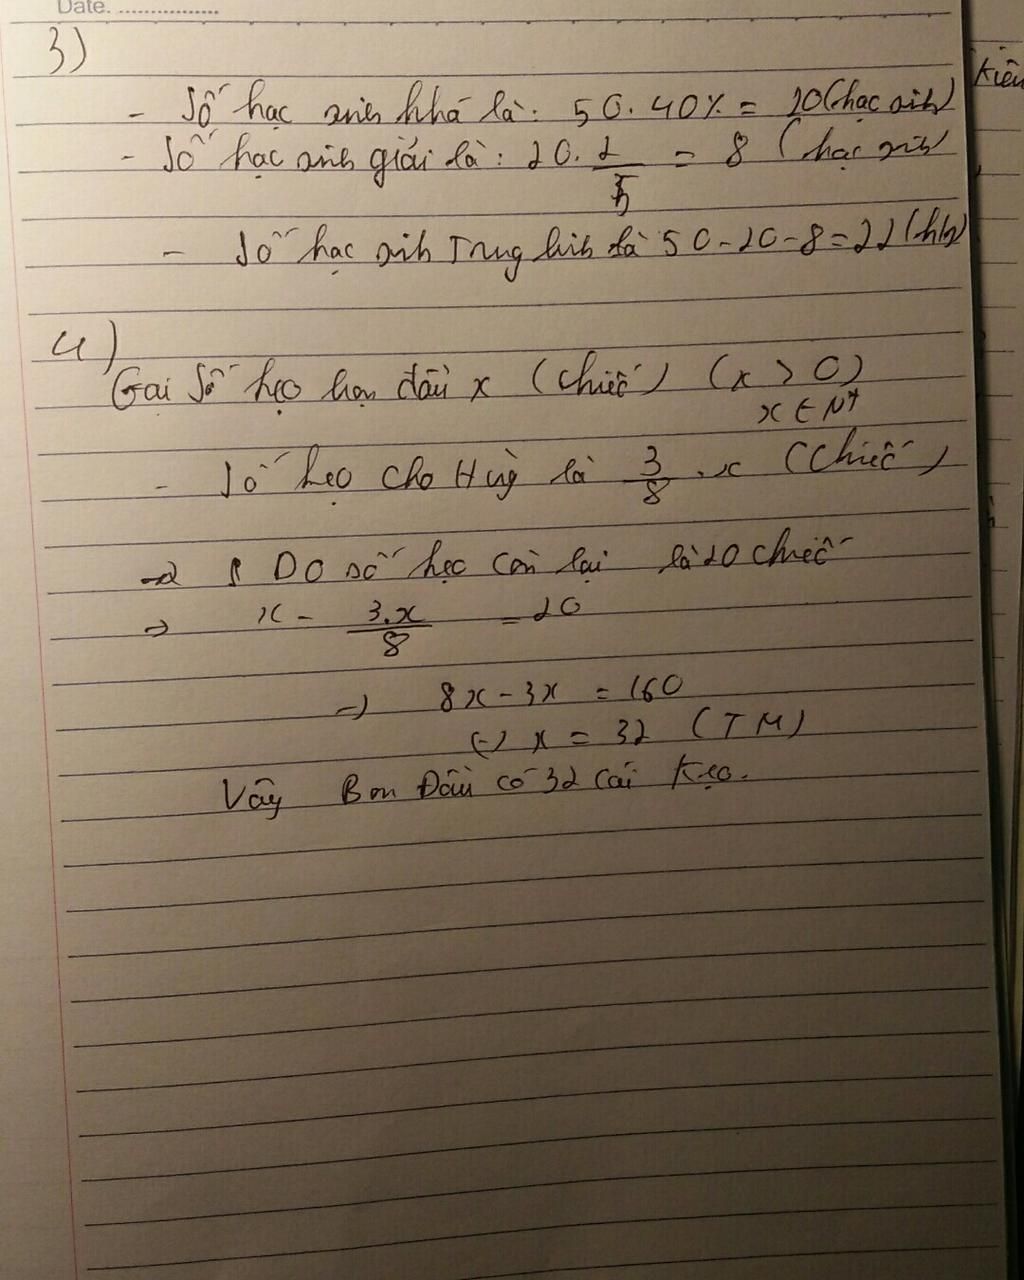 Date. ................
3)
- Số học sinh khá là: 50. 40% = 20 (học sinh)
- Số học sinh giỏi là: 20. 2/5 = 8 (học sinh
- Số học sinh Trung bình là 50-20-8=22 (hs)
4)
Gọi số kẹo ban đầu x (chiếc) (x > 0)
x ∈ N*
- Số kẹo cho Hùng là 3/8 . x (Chiếc)
→ Do số kẹo còn lại là 20 chiếc
→ x - 3.x/8 = 20
→ 8x - 3x = 160
(-) x = 32 (TM)
Vậy Ban Đầu có 32 cái kẹo.